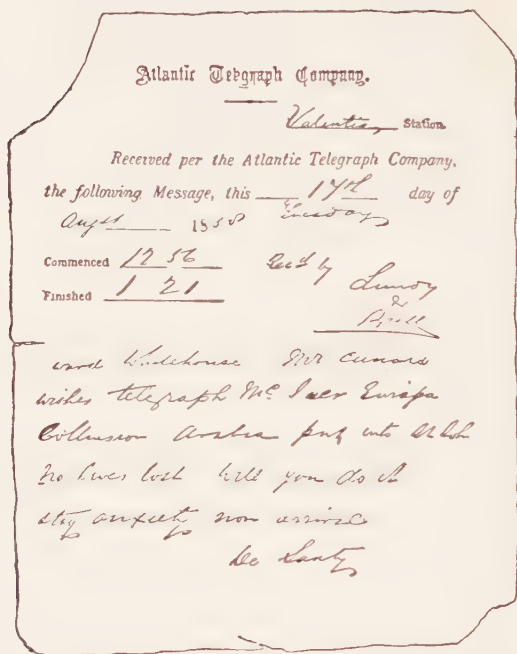 Atlantic Telegraph Company.
Valentia Station
Received per the Atlantic Telegraph Company,
the following Message, this 17th day of
Augst 1858 Tuesday
Commenced 12 56 Recd by
Finished 1 21 Lundy
&
ward Whitehouse Mr Cunard
wishes telegraph Mc Iver Europa
Collission Arabia put into St Johns
no lives lost will you do it
stay anxiety non arrival
De Sauty